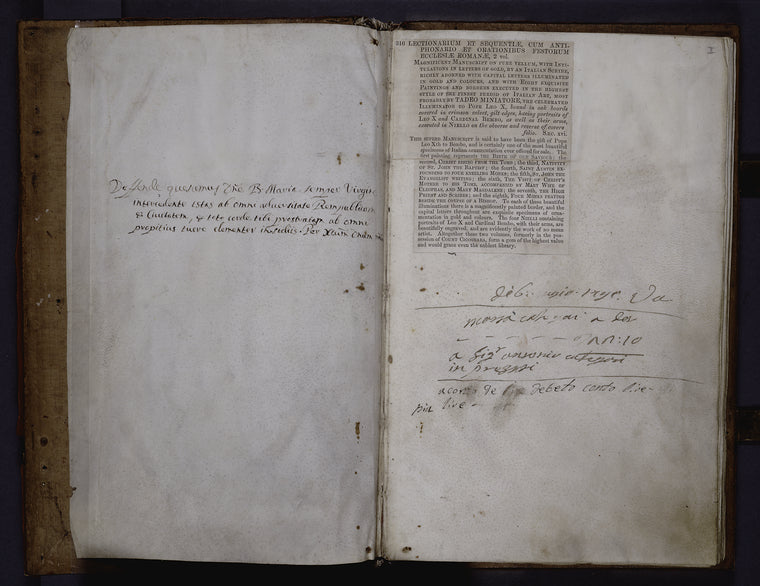 Defende quesumus Dñe B. Maria semper Virgine
intercedente istas ab omni adversitate Rempublicam
& Civitatem, & toto corde tibi prostratam ab omni
propitius tuere clementer insidiis. Per Xpum
I
316 LECTIONARIUM ET SEQUENTIÆ, CUM ANTI-
PHONARIO ET ORATIONIBUS FESTORUM
ECCLESLÆ ROMANÆ, 2 vol.
MAGNIFICENT MANUSCRIPT ON PURE VELLUM, WITH INTI-
TULATIONS IN LETTERS OF GOLD, BY AN ITALIAN SCRIBE,
RICHLY ADORNED WITH CAPITAL LETTERS ILLUMINATED
IN GOLD AND COLOURS, AND WITH EIGHT EXQUISITE
PAINTINGS AND BORDERS EXECUTED IN THE HIGHEST
STYLE OF THE FINEST PERIOD OF ITALIAN ART, MOST
PROBABLY BY TADEO MINIATORE, THE CELEBRATED
ILLUMINATOR TO POPE LEO X, bound in oak boards
covered in crimson velvet, gilt edges, having portraits of
LEO X and CARDINAL BEMBO, as well as their arms,
executed in NIELLO on the obverse and reverse of covers
folio. SÆC. XVI.
THIS SUPERB MANUSCRIPT is said to have been the gift of Pope
Leo Xth to Bembo, and is certainly one of the most beautiful
specimens of Italian ornamentation ever offered for sale. The
first painting represents the BIRTH OF OUR SAVIOUR; the
second, CHRIST RISING FROM THE TOMB; the third, NATIVITY
OF ST. JOHN THE BAPTIST; the fourth, SAINT AUSTIN EX-
POUNDING TO FOUR KNEELING MONKS; the fifth, ST. JOHN THE
EVANGELIST WRITING; the sixth, THE VISIT OF CHRIST'S
MOTHER TO HIS TOMB, ACCOMPANIED BY MARY WIFE OF
CLEOPHAS AND MARY MAGDALENE; the seventh, THE HIGH
PRIEST AND SCRIBES; and the eighth, FOUR MONKS PRAYING
BESIDE THE COFFIN OF A BISHOP. To each of these beautiful
illuminations there is a magnificently painted border, and the
capital letters throughout are exquisite specimens of orna-
mentation in gold and colours. The four NIELLI containing
portraits of Leo X and Cardinal Bembo, with their arms, are
beautifully engraved, and are evidently the work of no mean
artist. Altogether these two volumes, formerly in the pos-
session of COUNT CICOGNARA, form a gem of the highest value
and would grace even the noblest library.
a dos
10
a antonio
in
de debeto conto live
piu live